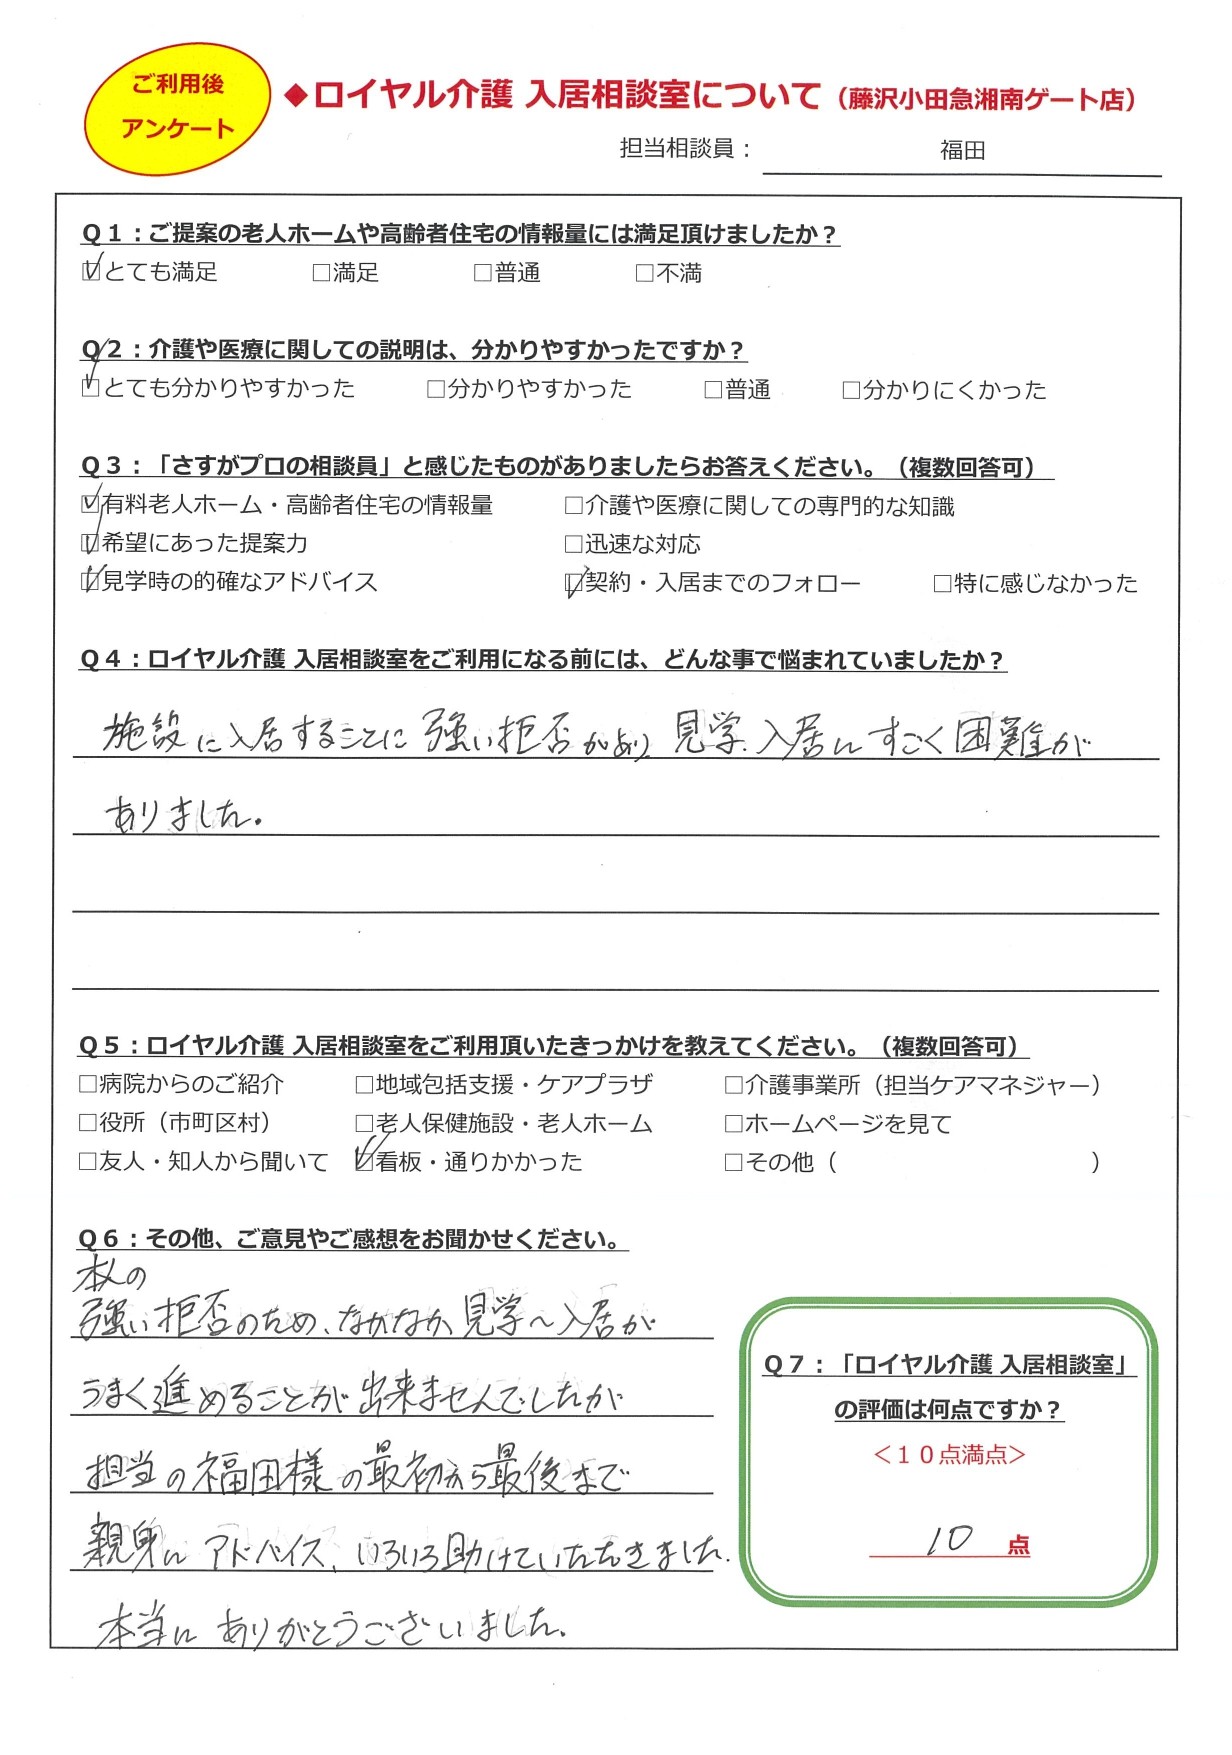 ご利用後
アンケート
◆ロイヤル介護 入居相談室について（藤沢小田急湘南ゲート店）
担当相談員： 福田
Ｑ１：ご提案の老人ホームや高齢者住宅の情報量には満足頂けましたか？
☑とても満足 □満足 □普通 □不満
Ｑ２：介護や医療に関しての説明は、分かりやすかったですか？
☑とても分かりやすかった □分かりやすかった □普通 □分かりにくかった
Ｑ３：「さすがプロの相談員」と感じたものがありましたらお答えください。（複数回答可）
☑有料老人ホーム・高齢者住宅の情報量 □介護や医療に関しての専門的な知識
☑希望にあった提案力 □迅速な対応
☑見学時の的確なアドバイス ☑契約・入居までのフォロー □特に感じなかった
Ｑ４：ロイヤル介護 入居相談室をご利用になる前には、どんな事で悩まれていましたか？
施設に入居することに強い拒否があり、見学、入居にすごく困難が
ありました。
Ｑ５：ロイヤル介護 入居相談室をご利用頂いたきっかけを教えてください。（複数回答可）
□病院からのご紹介 □地域包括支援・ケアプラザ □介護事業所（担当ケアマネジャー）
□役所（市町区村） □老人保健施設・老人ホーム □ホームページを見て
□友人・知人から聞いて ☑看板・通りかかった □その他（ ）
Ｑ６：その他、ご意見やご感想をお聞かせください。
本人の
強い拒否のため、なかなか見学～入居が
うまく進めることが出来ませんでしたが
担当の福田様の最初から最後まで
親身にアドバイス、いろいろ助けていただきました。
本当にありがとうございました。
Ｑ７：「ロイヤル介護 入居相談室」
の評価は何点ですか？
＜１０点満点＞
10 点